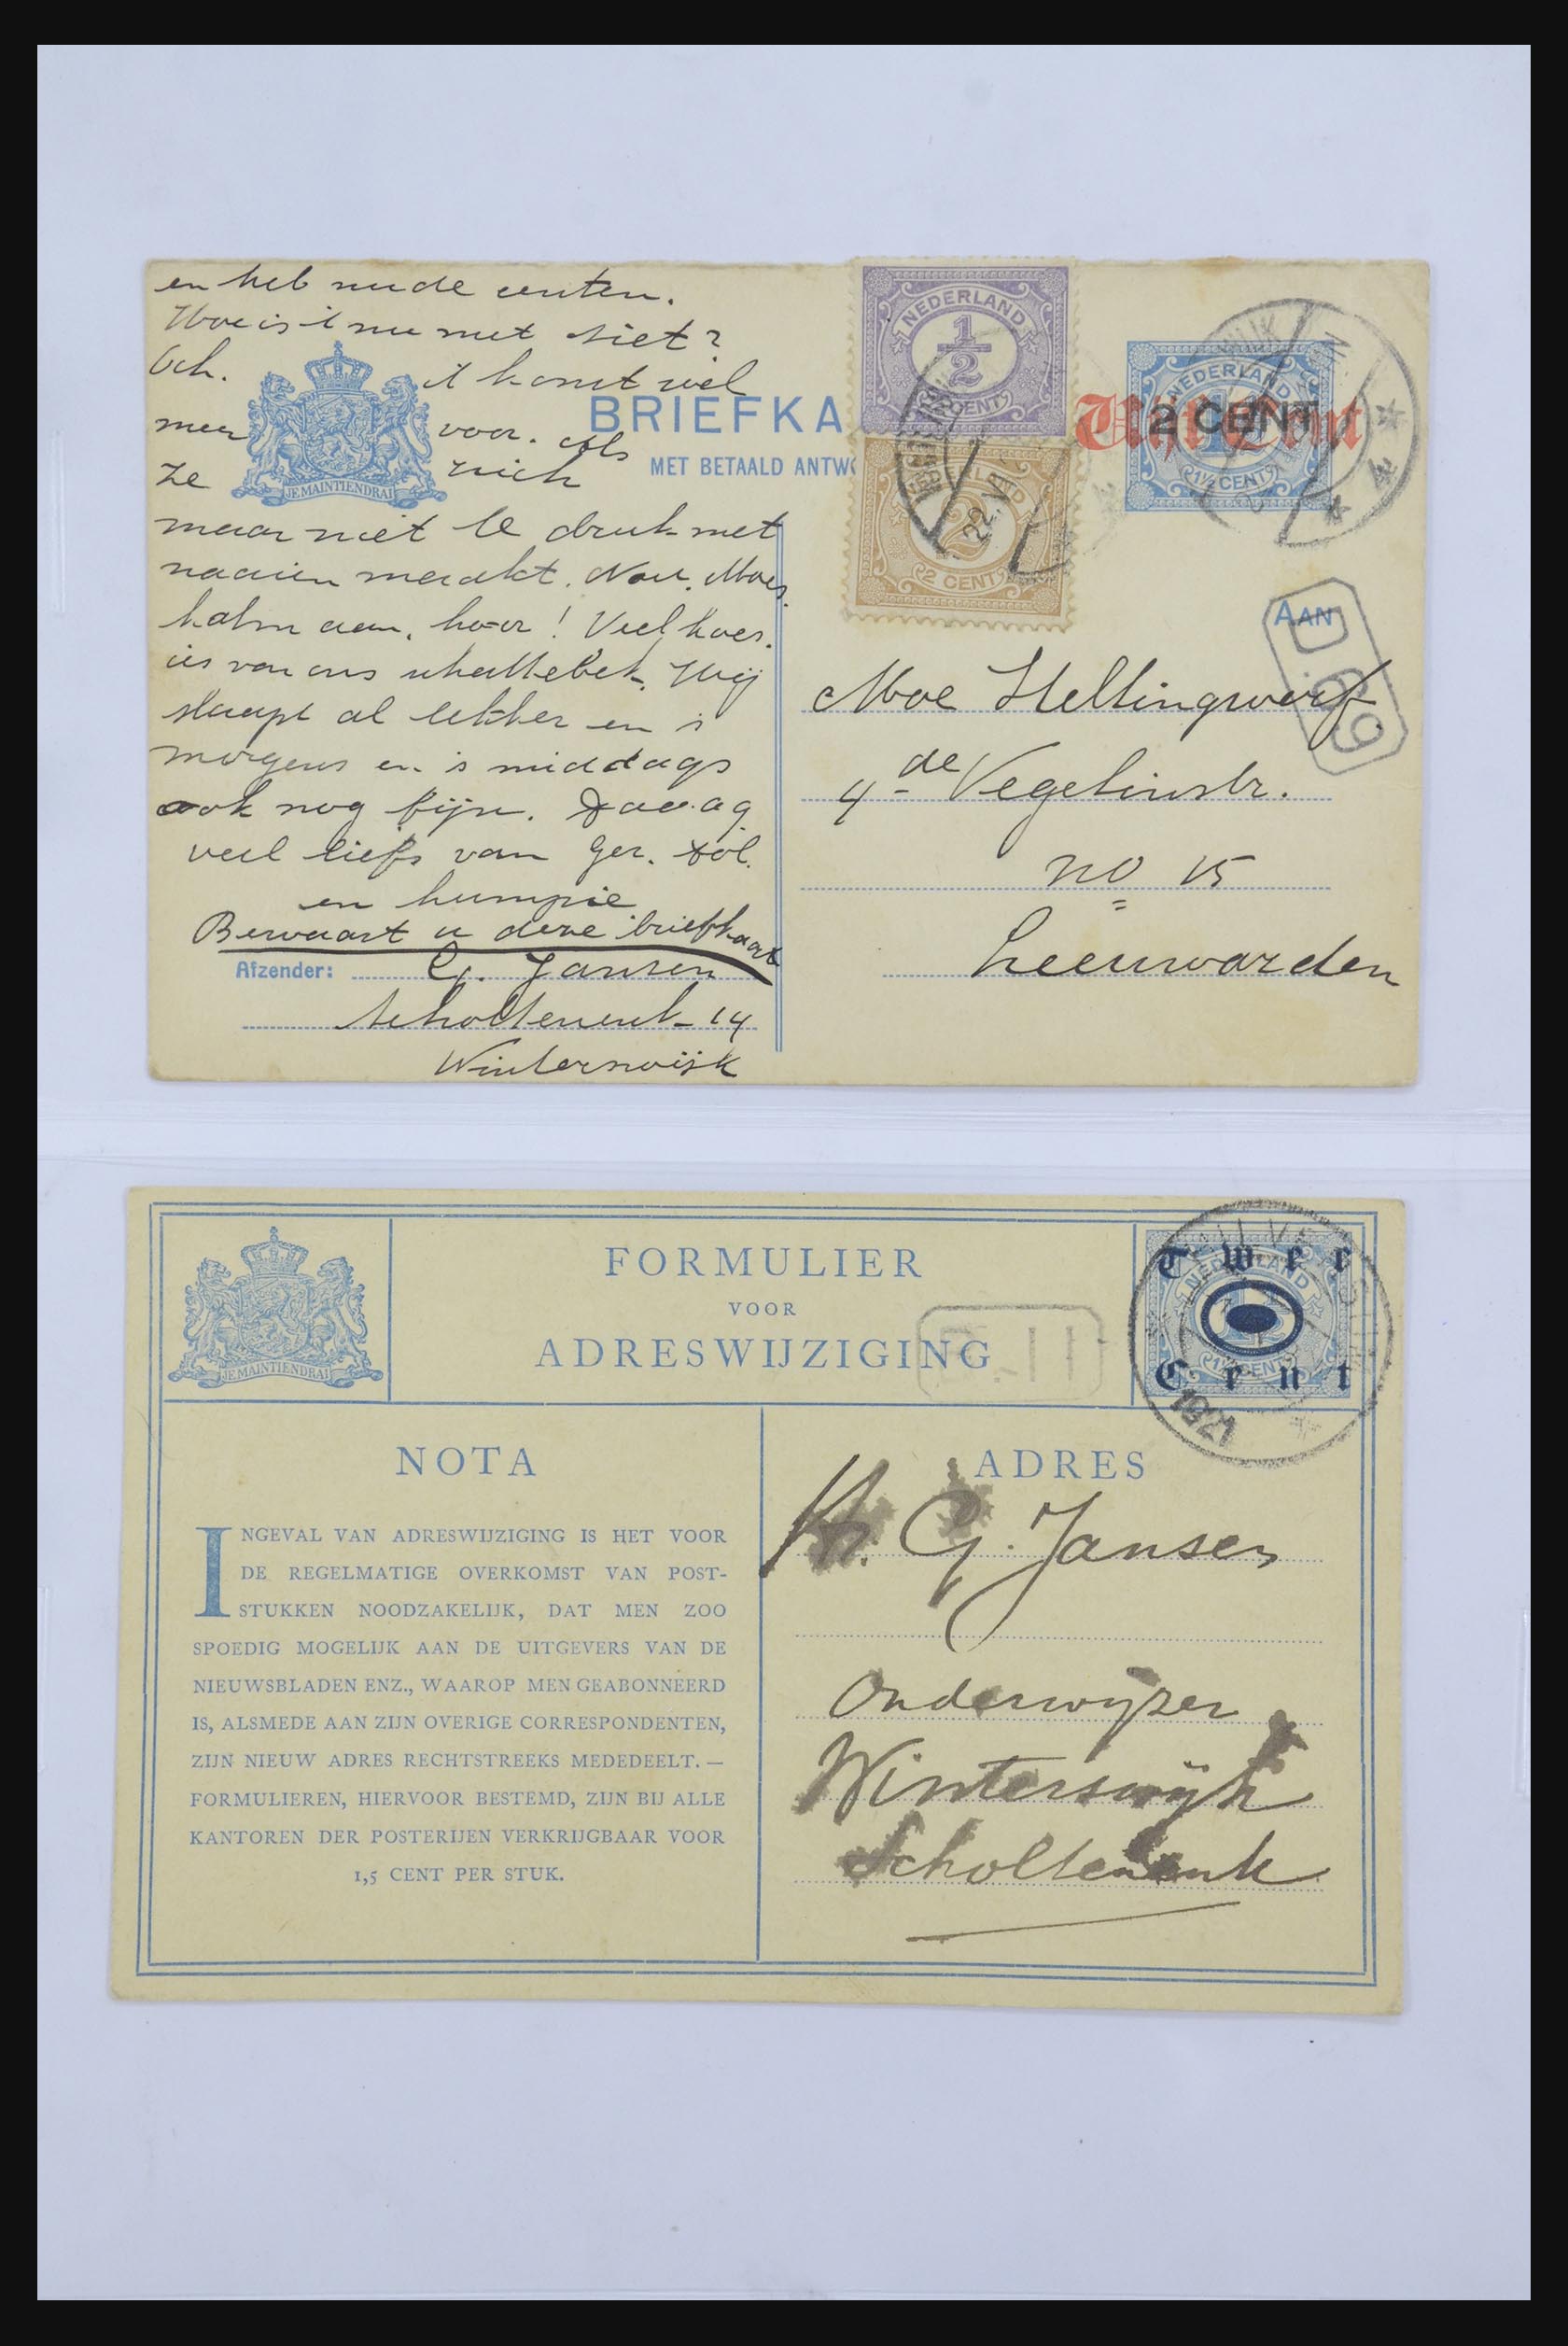 en heb nu de centen.
Hoe is 't nu met Siet?
Och. 't komt wel
meer voor. Als
ze zich
maar niet te druk met
naaien maakt. Nou. Moes.
kalm aan, hoor! Veel koes.
ies van ons Wij
slaapt al lekker en 's
morgens en 's middags
ook nog fijn. Daaag
veel liefs van Ger. Dol.
en humpie
Bewaart u deze briefkaart
JE MAINTIENDRAI
BRIEFKA
MET BETAALD ANTW
Afzender: G. Jansen
Scholtenenk 14
Winterswijk
NEDERLAND
1/2
CENT
NEDERLAND
2
2 CENT
22
NEDERLAND
2 CENT
Vijf Cent
1½ CENT
AAN
Moe Hellingwerf.
4de Vegelinstr.
no 15
Leeuwarden
FORMULIER
VOOR
ADRESWIJZIGING
JE MAINTIENDRAI
NEDERLAND
Twee
Cent
1½ CENT
1921
NOTA
INGEVAL VAN ADRESWIJZIGING IS HET VOOR
DE REGELMATIGE OVERKOMST VAN POST-
STUKKEN NOODZAKELIJK, DAT MEN ZOO
SPOEDIG MOGELIJK AAN DE UITGEVERS VAN DE
NIEUWSBLADEN ENZ., WAAROP MEN GEABONNEERD
IS, ALSMEDE AAN ZIJN OVERIGE CORRESPONDENTEN,
ZIJN NIEUW ADRES RECHTSTREEKS MEDEDEELT. —
FORMULIEREN, HIERVOOR BESTEMD, ZIJN BIJ ALLE
KANTOREN DER POSTERIJEN VERKRIJGBAAR VOOR
1,5 CENT PER STUK.
ADRES
G. Jansen
Onderwijzer
Winterswijk
Scholtenenk